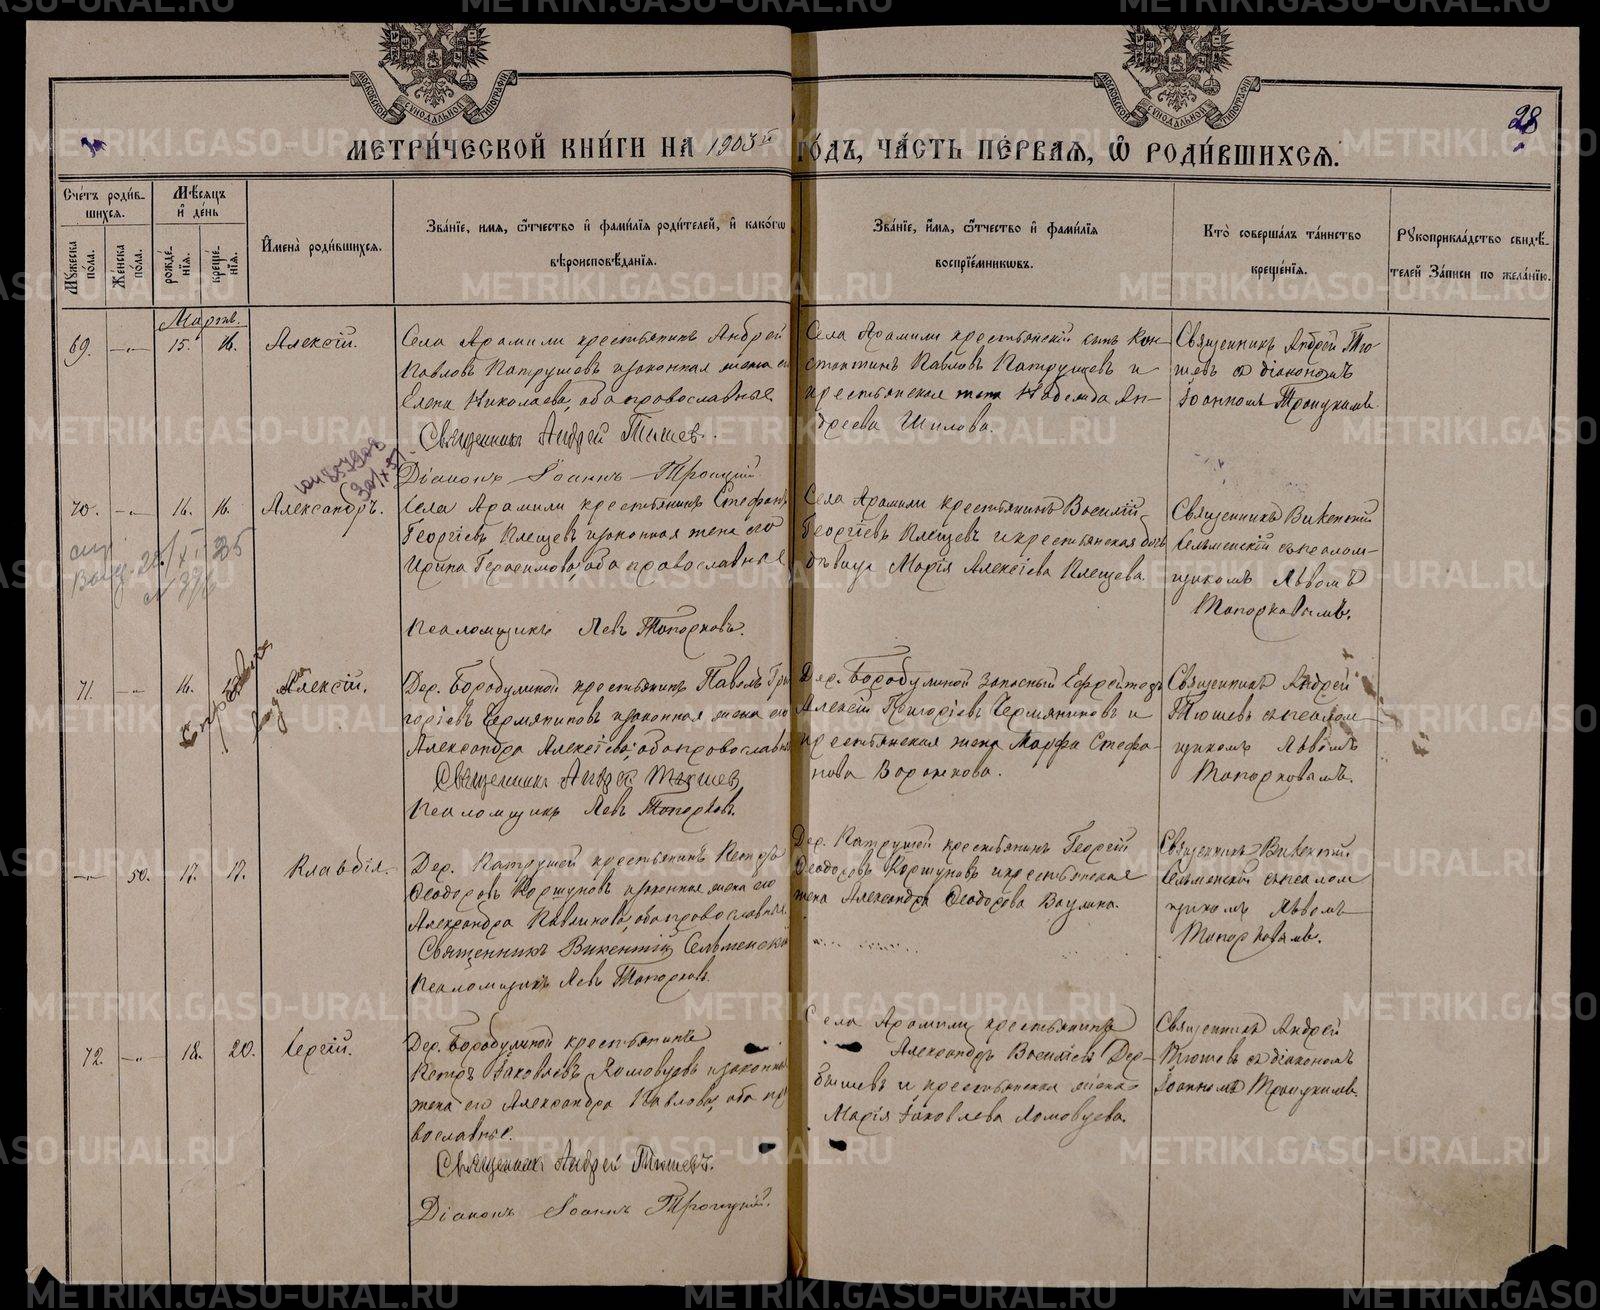 МЕТРИ́ЧЕСКОЙ КНИ́ГИ НА 1903й ГО́ДЪ, ЧА́СТЬ ПЕ́РВАЯ, Ѽ РОДИ́ВШИХСЯ.
28
Сче́тъ роди́в-
шихся.
Мѣ́сяцъ
и҆ де́нь
И҆мена̀ роди́вшихся.
Зва́нїе, и҆мя, ѻ҆́тчество и҆ фами́лїя роди́телей, и҆ како́гѡ
вѣроисповѣ́данїя.
Зва́нїе, и҆́мя, ѻ҆́тчество и҆ фами́лїя
воспрїе́мникѡвъ.
Кто̀ соверша́лъ та́инство
креще́нїя.
Рꙋкоприкла́дство свидѣ́-
телей За́писи по жела́нїю.
Мꙋжеска
по́ла.
Же́нска
по́ла.
рожде́-
нїя.
креще́-
нїя.
Мартъ.
69.
15.
16.
Алексій.
Села Арамили крестьянинъ Андрей
Павловъ Патрушевъ и законная жена его
Елена Николаева, оба православные
Священникъ Андрей Тюшевъ.
Діаконъ Іоаннъ Троицкій
Села Арамили крестьянскій сынъ Кон-
стантинъ Павловъ Патрушевъ и
крестьянская жена Надежда Ан-
дреева Шилова.
Священникъ Андрей Тю-
шевъ съ діакономъ
Іоанномъ Троицкимъ.
70.
16.
16.
Александръ.
Села Арамили крестьянинъ Стефанъ
Георгіевъ Клещевъ и законная жена его
Ирина Герасимова, оба православные
Псаломщикъ Левъ Топорковъ.
Села Арамили крестьянинъ Василій
Георгіевъ Клещевъ и крестьянская дочь
дѣвица Марія Алексіева Клещева.
Священникъ Викентій
Сельменскій съ псалом-
щикомъ Львомъ
Топорковымъ.
71.
16.
Алексій.
Дер. Бородулиной крестьянинъ Павелъ Гри
горіевъ Чермяниновъ и законная жена его
Александра Алексіева, оба православные
Священникъ Андрей Тюшевъ
Псаломщикъ Левъ Топорковъ.
Дер. Бородулиной запасный Ефрейторъ
Алексій Григоріевъ Чермяниновъ и
крестьянская жена Марфа Стефа-
нова Воронкова.
Священникъ Андрей
Тюшевъ съ псалом-
щикомъ Львомъ
Топорковымъ.
50.
17.
17.
Клавдія.
Дер. Патрушей крестьянинъ Петръ
Ѳеодоровъ Коршуновъ и законная жена его
Александра Павлинова, оба православные.
Священникъ Викентій Сельменскій
Псаломщикъ Левъ Топорковъ.
Дер. Патрушей крестьянинъ Георгій
Ѳеодоровъ Коршуновъ и крестьянская
жена Александра Ѳеодорова Ваулина.
Священникъ Викентій
Сельменскій съ псалом
щикомъ Львомъ
Топорковымъ.
72.
18.
20.
Сергій.
Дер. Бородулиной крестьянинъ
Петръ Іаковлевъ Хомовцевъ и законная
жена его Александра Павлова, оба пра
вославные.
Священникъ Андрей Тюшевъ.
Діаконъ Іоаннъ Троицкій.
Села Арамили крестьянинъ
Александръ Василіевъ Дер-
бышевъ и крестьянская жена
Марія Іаковлева Хомовцева.
Священникъ Андрей
Тюшевъ съ діакономъ
Іоанномъ Троицкимъ.